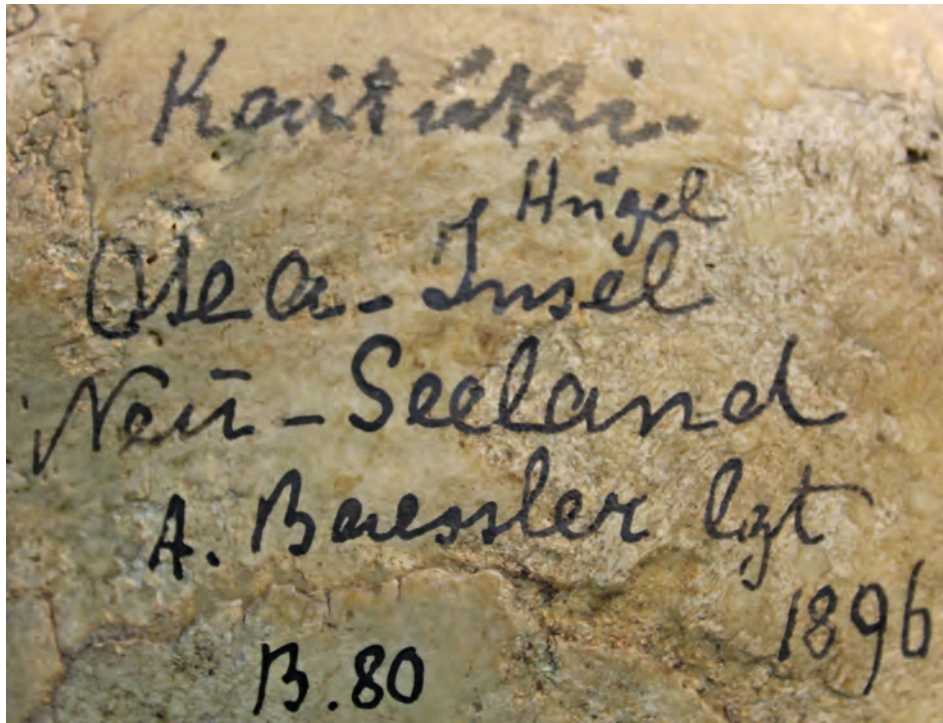 Kaitūki-
Hügel
Otea-Insel
Neū-Seeland
A. Baessler lgt
1896
B.80